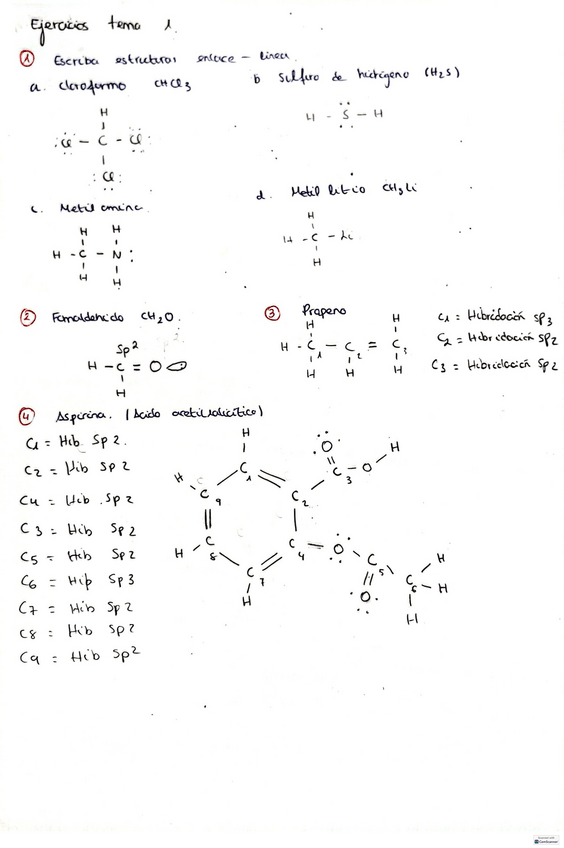 Ejercicios tema 1.
① Escriba estructuras enlace - línea.
a. Cloroformo CHCl3
b Sulfuro de hidrógeno (H2S)
H
:Cl - C - Cl:
:Cl:
H - S - H
c. Metilamina.
d. Metil litio CH3Li
H H
H - C - N:
H H
H
H - C - Li
H
② Formaldehido CH2O.
Sp2
H - C = O
H
③ Propeno
H H
H - C1 - C2 = C3
H H H
C1 = Hibridación sp3
C2 = Hibridación sp2
C3 = Hibridación sp2
④ Aspirina. (Ácido acetilsalicílico)
C1 = Hib Sp2.
C2 = Hib Sp2
C4 = Hib. Sp2
C3 = Hib Sp2
C5 = Hib Sp2
C6 = Hib Sp3
C7 = Hib Sp2
C8 = Hib Sp2
C9 = Hib Sp2
H O H
H C1 C3 - O
C9 C2
H C8 C4 = O C5 H
C7 O C6 - H
H H
CamScanner